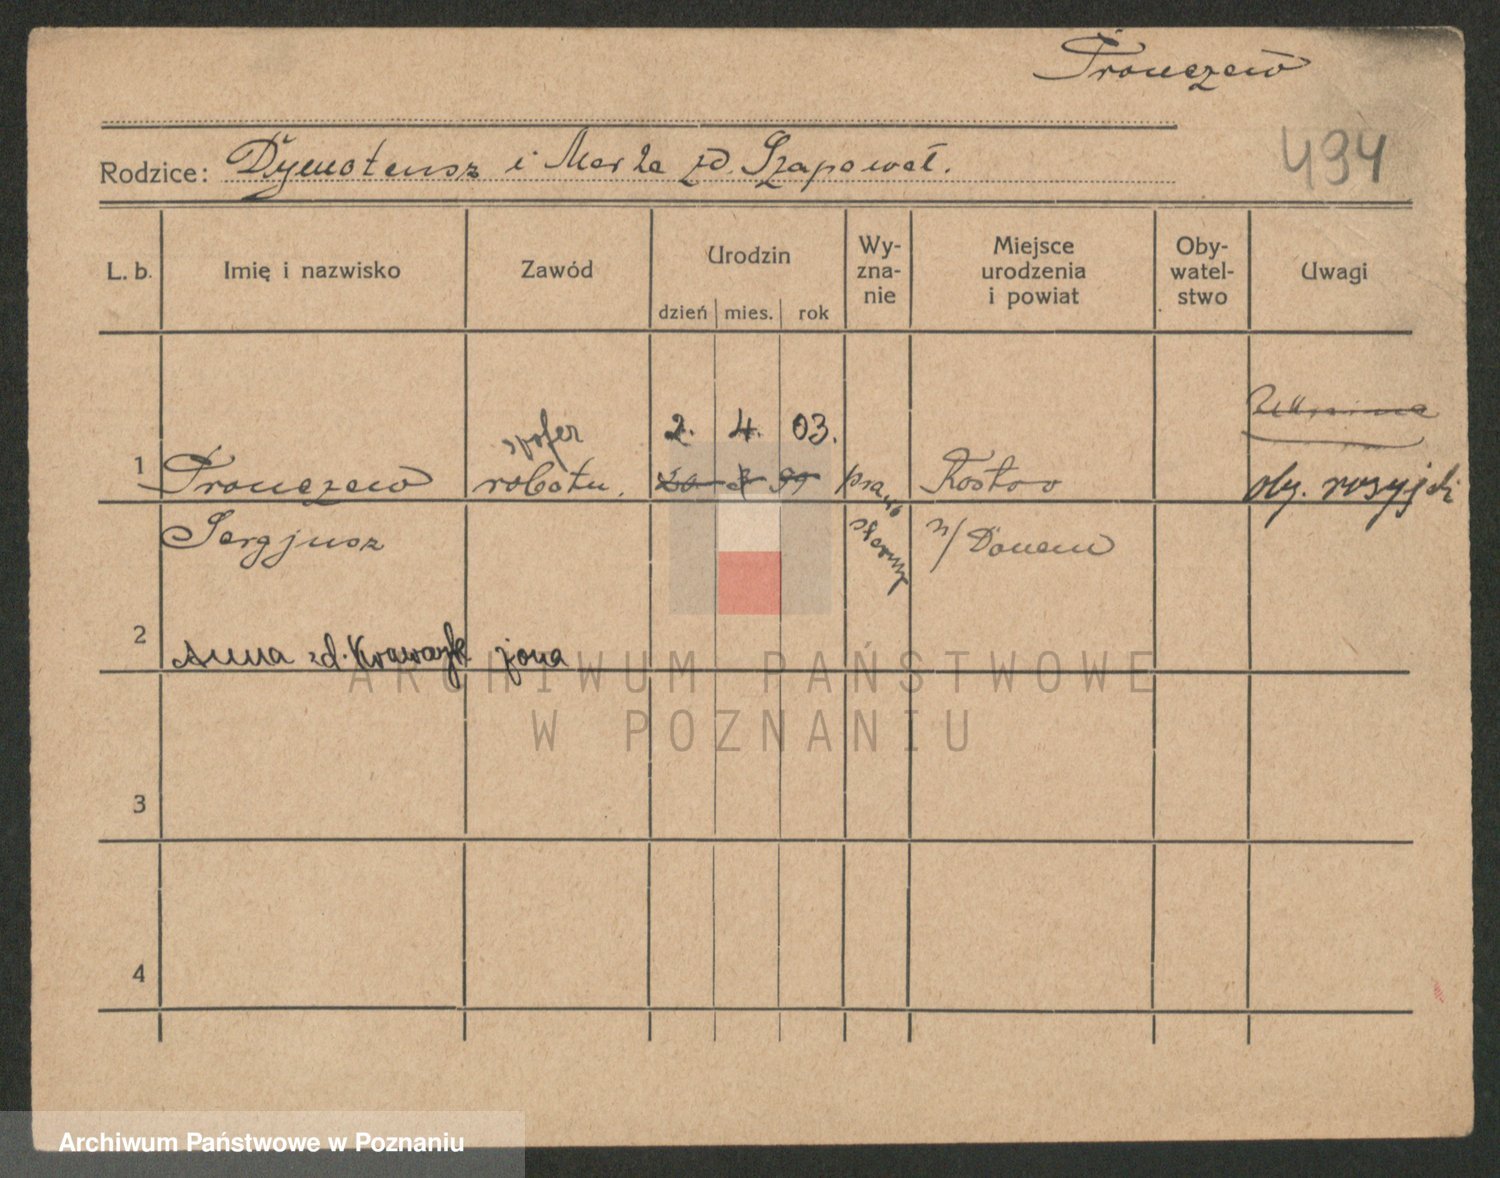 Pronczew
494
Rodzice: Dymoteusz i Marta zd. Szapował.
L. b. Imię i nazwisko Zawód Urodzin Wyznanie Miejsce urodzenia i powiat Obywatelstwo Uwagi
dzień mies. rok
szofer 2. 4. 03.
1 Pronczew robotn. 20 3 99 prawo Rostow oby. rosyjski
Sergjusz sławny n/Donem
2 Anna zd. Krawczyk żona
3
4
ARCHIWUM PAŃSTWOWE
W POZNANIU
Archiwum Państwowe w Poznaniu